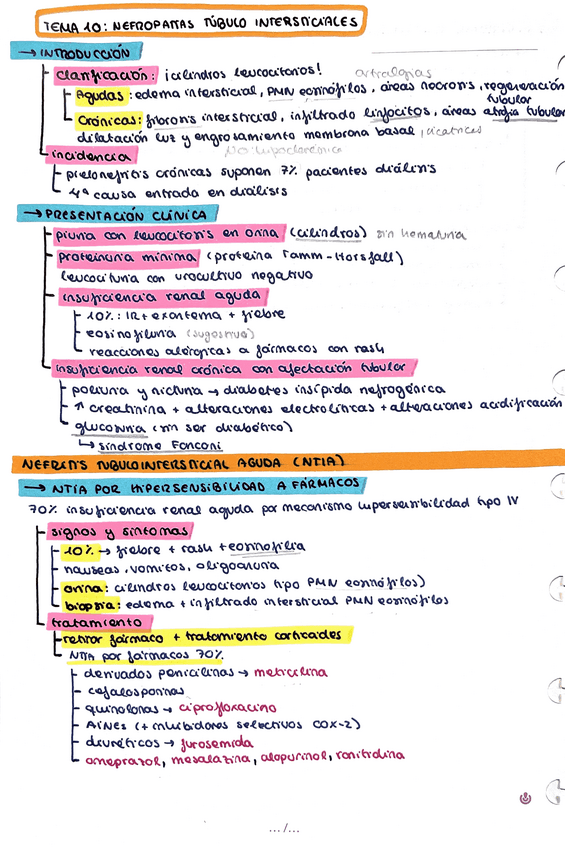 TEMA 10: NEFROPATÍAS TÚBULO INTERSTICIALES
→ INTRODUCCIÓN
clasificación: ¡cilindros leucocitarios! artralgias
Agudas: edema intersticial, PMN eosinófilos, áreas necrosis, regeneración tubular
Crónicas: fibrosis intersticial, infiltrado linfocitos, áreas atrofia tubular
dilatación luz y engrosamiento membrana basal, cicatrices
incidencia
pielonefritis crónicas suponen 7% pacientes diálisis
4ª causa entrada en diálisis
→ PRESENTACIÓN CLÍNICA
piuria con leucocitosis en orina (cilindros) sin hematuria
proteinuria mínima (proteína Tamm-Horsfall)
leucocituria con urocultivo negativo
insuficiencia renal aguda
10%: IR + exantema + fiebre
eosinofiluria (sugestiva)
reacciones alérgicas a fármacos con rash
insuficiencia renal crónica con afectación tubular
poliuria y nicturia → diabetes insípida nefrogénica
↑ creatinina + alteraciones electrolíticas + alteraciones acidificación
glucosuria (sin ser diabético)
↳ síndrome Fanconi
NEFRITIS TUBULOINTERSTICIAL AGUDA (NTIA)
→ NTIA POR HIPERSENSIBILIDAD A FÁRMACOS
70% insuficiencia renal aguda por mecanismo hipersensibilidad tipo IV
signos y síntomas
10% → fiebre + rash + eosinofilia
náuseas, vómitos, oligoanuria
orina: cilindros leucocitarios tipo PMN eosinófilos)
biopsia: edema + infiltrado intersticial PMN eosinófilos
tratamiento
retirar fármaco + tratamiento corticoides
NTIA por fármacos 70%
derivados penicilinas → meticilina
cefalosporinas
quinolonas → ciprofloxacino
AINEs (+ inhibidores selectivos COX-2)
diuréticos → furosemida
omeprazol, mesalazina, alopurinol, ranitidina
.../...